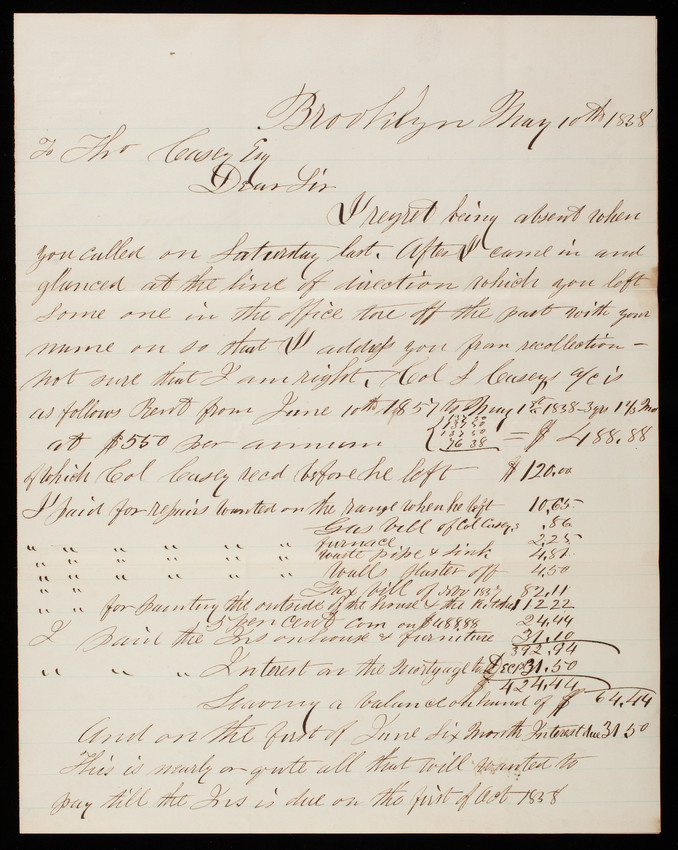 Brooklyn May 10th 1858
To Tho Casey Esq
Dear Sir
I regret being absent when
you called on Saturday last. After I came in and
glanced at the line of direction which you left
some one in the office tore off the part with your
name on so that I address you from recollection -
not sure that I am right. Col S Caseys a/c is
as follows Rent from June 10th 1857 to May 1st 1858
at $550 per annum = $488.88
of which Col Casey recd before he left $120.00
I paid for repairs wanted on the range when he left 10.65
Gas bill of Col Caseys .86
" " " " " " furnace 2.25
" " " " " " waste pipe & sink 4.81
" " " " " " Walls plaster off 4.50
" " Tax bill of 1857 82.11
" " for painting the outside of the house & the kitchen 112.22
5 per cent com on $488.88 24.44
I paid the Ins on house & furniture 31.10
392.94
" " " Interest on the Mortgage to Dec 31.50
$424.44
Leaving a balance on hand of $64.44
And on the first of June Six Month Interest due 31.50
This is nearly or quite all that will wanted to
pay till the Ins is due on the first of Oct 1858